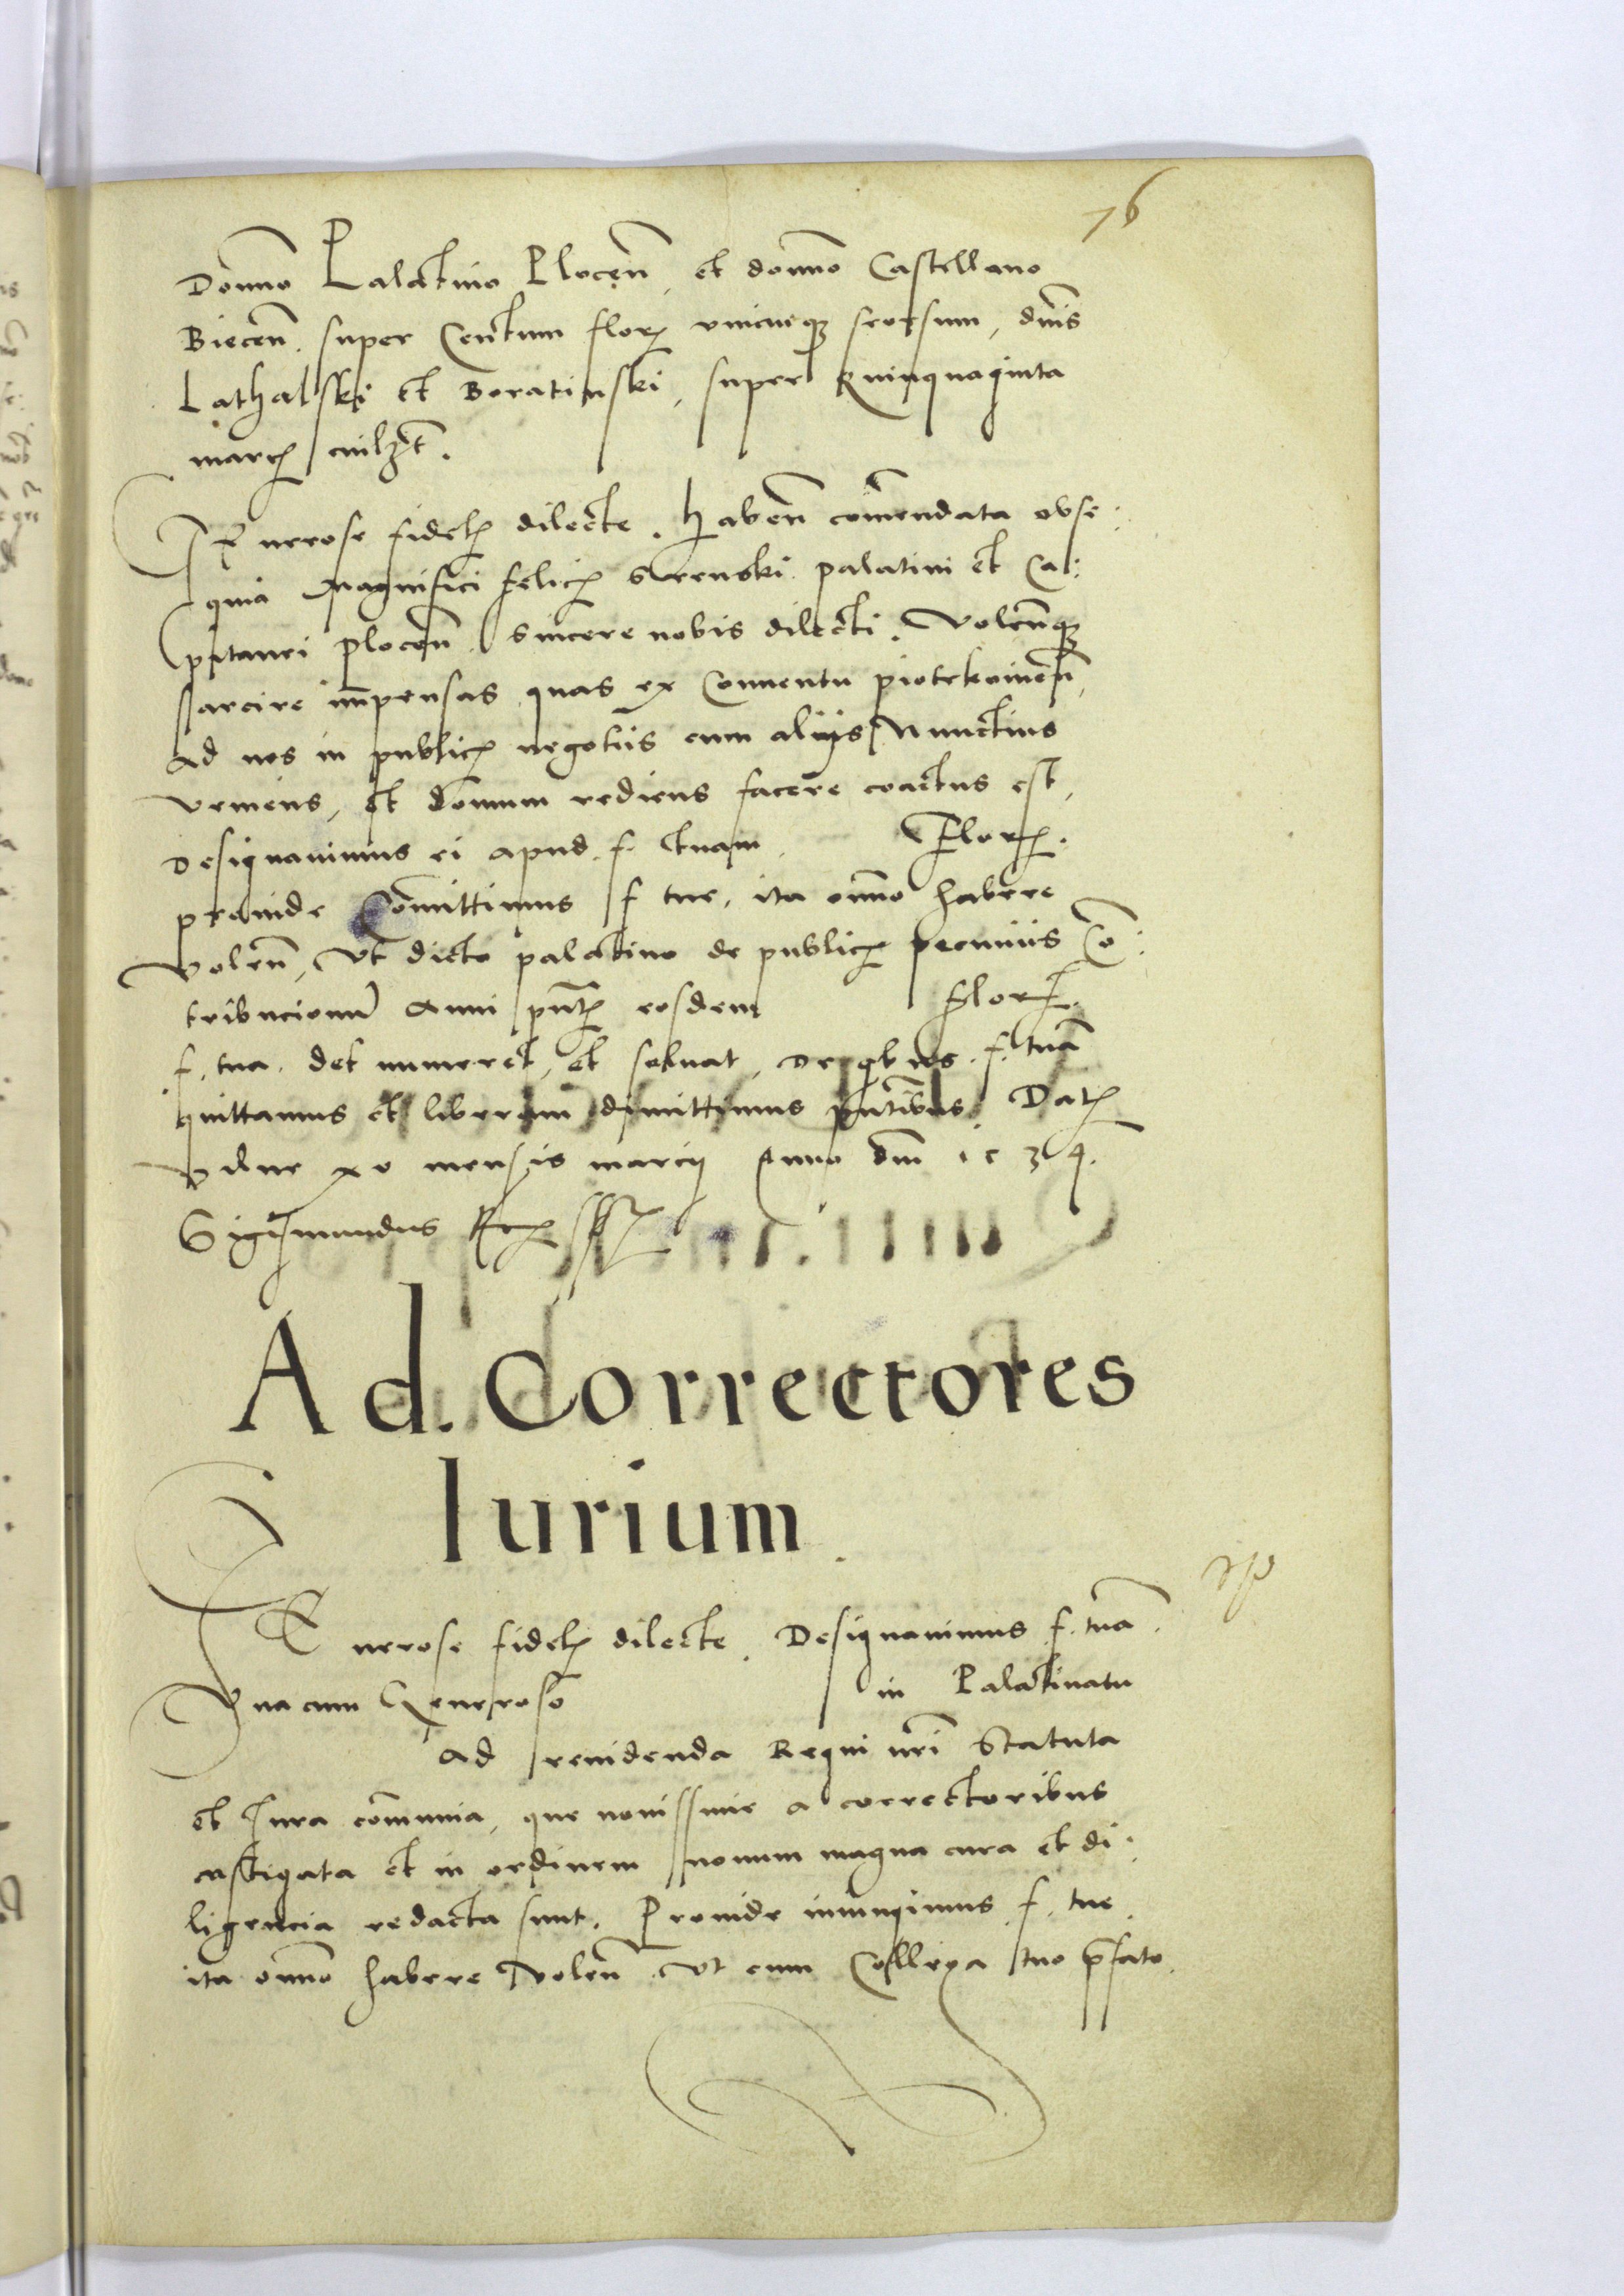 76
Domno Palatino Plocen̄, et domno Castellano
Biecen̄. super Centum flor̄ unicuiqꜣ seorsum, dnīs
Lathalski et Boratinski, super Quinquaginta
marcꝭ cuilꝫt.
Generose fidelꝭ dilecte. Haben̄ comēndata obse:
quia Magnifici felicꝭ Srenski palatini et Ca:
pitanei plocen̄. sincere nobis dilecti. Volen̄qꜣ
sarcire impensas quas ex Conventu piotrkovien̄
ad nos in publicꝭ negotiis cum aliis Nunctius
veniens, et domum rediens facere coactus est,
Designavimus ei apud f. tuam Florꝭ.
proinde Com̄ittimus f tue, ita om̄no habere
volen̄, Ut dicto palatino de publicꝭ pecuniis Cō:
tribucionum Anni pn̄tꝭ eosdem Florꝭ.
f. tua. det numeret, et solvat, De qbus f. tuā
quittamus et liberam dimittimus pn̄tibus. Datꝭ
Vilne xo mensis marcii Anno dm̄ 1534.
Sigismundus Rex sspt
Ad. Correctores
Iurium.
Generose fidelꝭ dilecte. Designavimus f. tuā.
Una cum Generoso in Palatinatu
Ad revidenda Regni nr̄i Statuta
et Iura com̄unia, que novissime a correctoribus
castigata et in ordinem novum magna cura et di:
ligencia redacta sunt. Proinde iniungimus f. tue.
ita om̄no habere volen̄. Ut cum Collega tuo p̄fato.